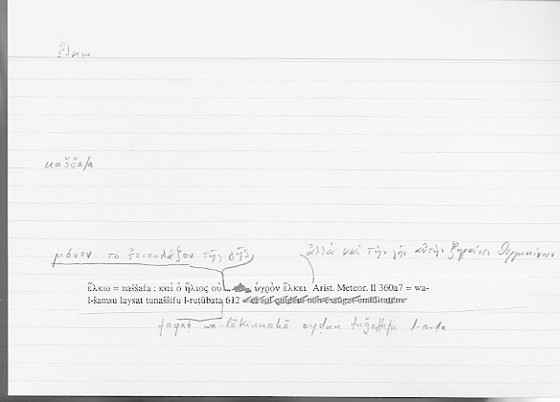 ἕλκω
naššafa
μόνον τὸ ἐπιπολάζον τῆς γῆς ἀλλὰ καὶ τὴν γῆν αὐτὴν ξηραίνει θερμαίνων
ἕλκω = naššafa : καὶ ὁ ἥλιος οὐ ὑγρὸν ἕλκει Arist. Meteor. II 360a7 = wa-
l-šamsu laysat tunaššifu l-ruṭūbata 612
faqaṭ wa-lākinnahā ayḍan tuǧaffifu l-arḍa